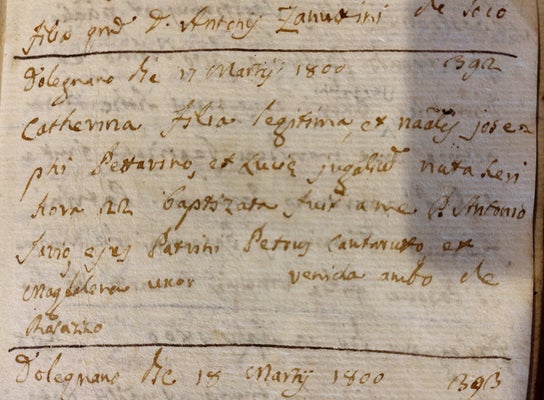 filia qnd D. Antonij Zanuttini de loco
Dolegnano Die 17 Martij 1800 392
Catherina filia legitima, et nãlis Jose=
phi Pettarino, et Lucię jugaliũ nata heri
hora 22 baptizata fuit a me P. Antonio
ejus Patrini Petrus Cantarutto, et
Magdalena uxor venida ambo de
Dolegnano Die 18 Martij 1800 393